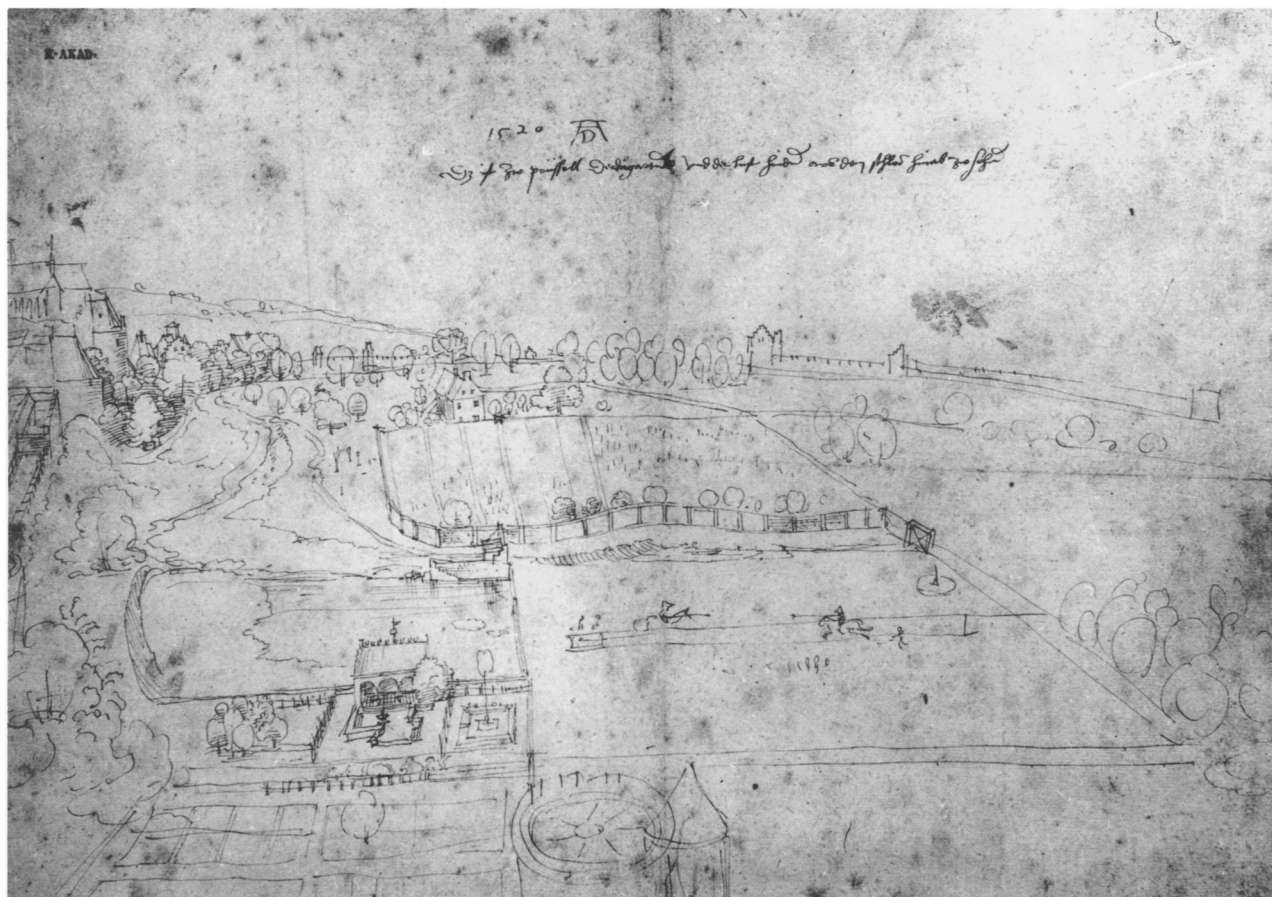 K·AKAD·
1520 AD
Dz ist zw prüssell der dirgartn vnd der lust hindn aws dem schlos hinab zw sehn